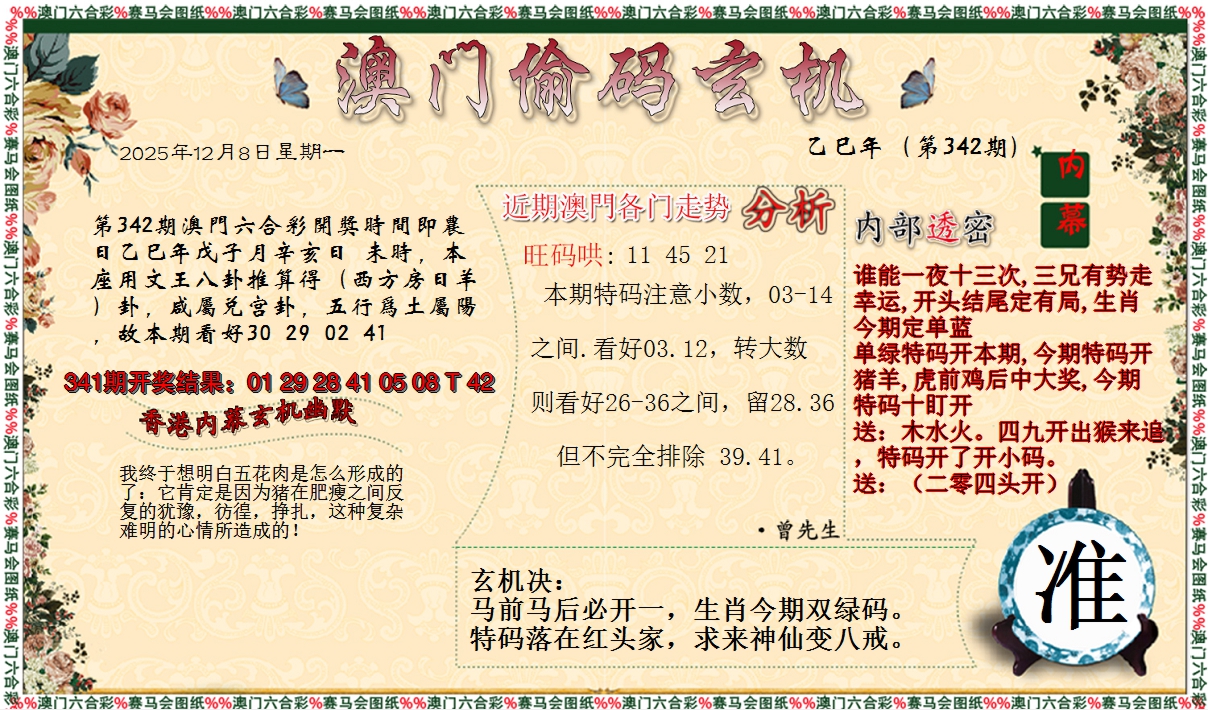 %%澳门六合彩%赛马会图纸%%澳门六合彩%赛马会图纸%%澳门六合彩%赛马会图纸%%澳门六合彩%赛马会图纸%%澳门六合彩%赛马会图纸%%澳门六合彩%赛马会图纸%%
澳门偷码玄机
2025年12月8日星期一
乙巳年（第342期）
内幕
第342期澳門六合彩開獎時間即農
日乙巳年戊子月辛亥日 未時，本
座用文王八卦推算得（西方房日羊
）卦，咸屬兑宫卦，五行爲土屬陽
，故本期看好30 29 02 41
341期开奖结果：01 29 28 41 05 08 T 42
香港内幕玄机幽默
我终于想明白五花肉是怎么形成的
了：它肯定是因为猪在肥瘦之间反
复的犹豫，彷徨，挣扎，这种复杂
难明的心情所造成的！
近期澳門各门走势 分析
旺码哄: 11 45 21
本期特码注意小数，03-14
之间.看好03.12，转大数
则看好26-36之间，留28.36
但不完全排除 39.41。
·曾先生
内部透密
谁能一夜十三次,三兄有势走
幸运,开头结尾定有局,生肖
今期定单蓝
单绿特码开本期,今期特码开
猪羊,虎前鸡后中大奖,今期
特码十盯开
送：木水火。四九开出猴来追
，特码开了开小码。
送：（二零四头开）
玄机决：
马前马后必开一，生肖今期双绿码。
特码落在红头家，求来神仙变八戒。
准
%%澳门六合彩%赛马会图纸%%澳门六合彩%赛马会图纸%%澳门六合彩%赛马会图纸%%澳门六合彩%赛马会图纸%%澳门六合彩%赛马会图纸%%澳门六合彩%赛马会图纸%%